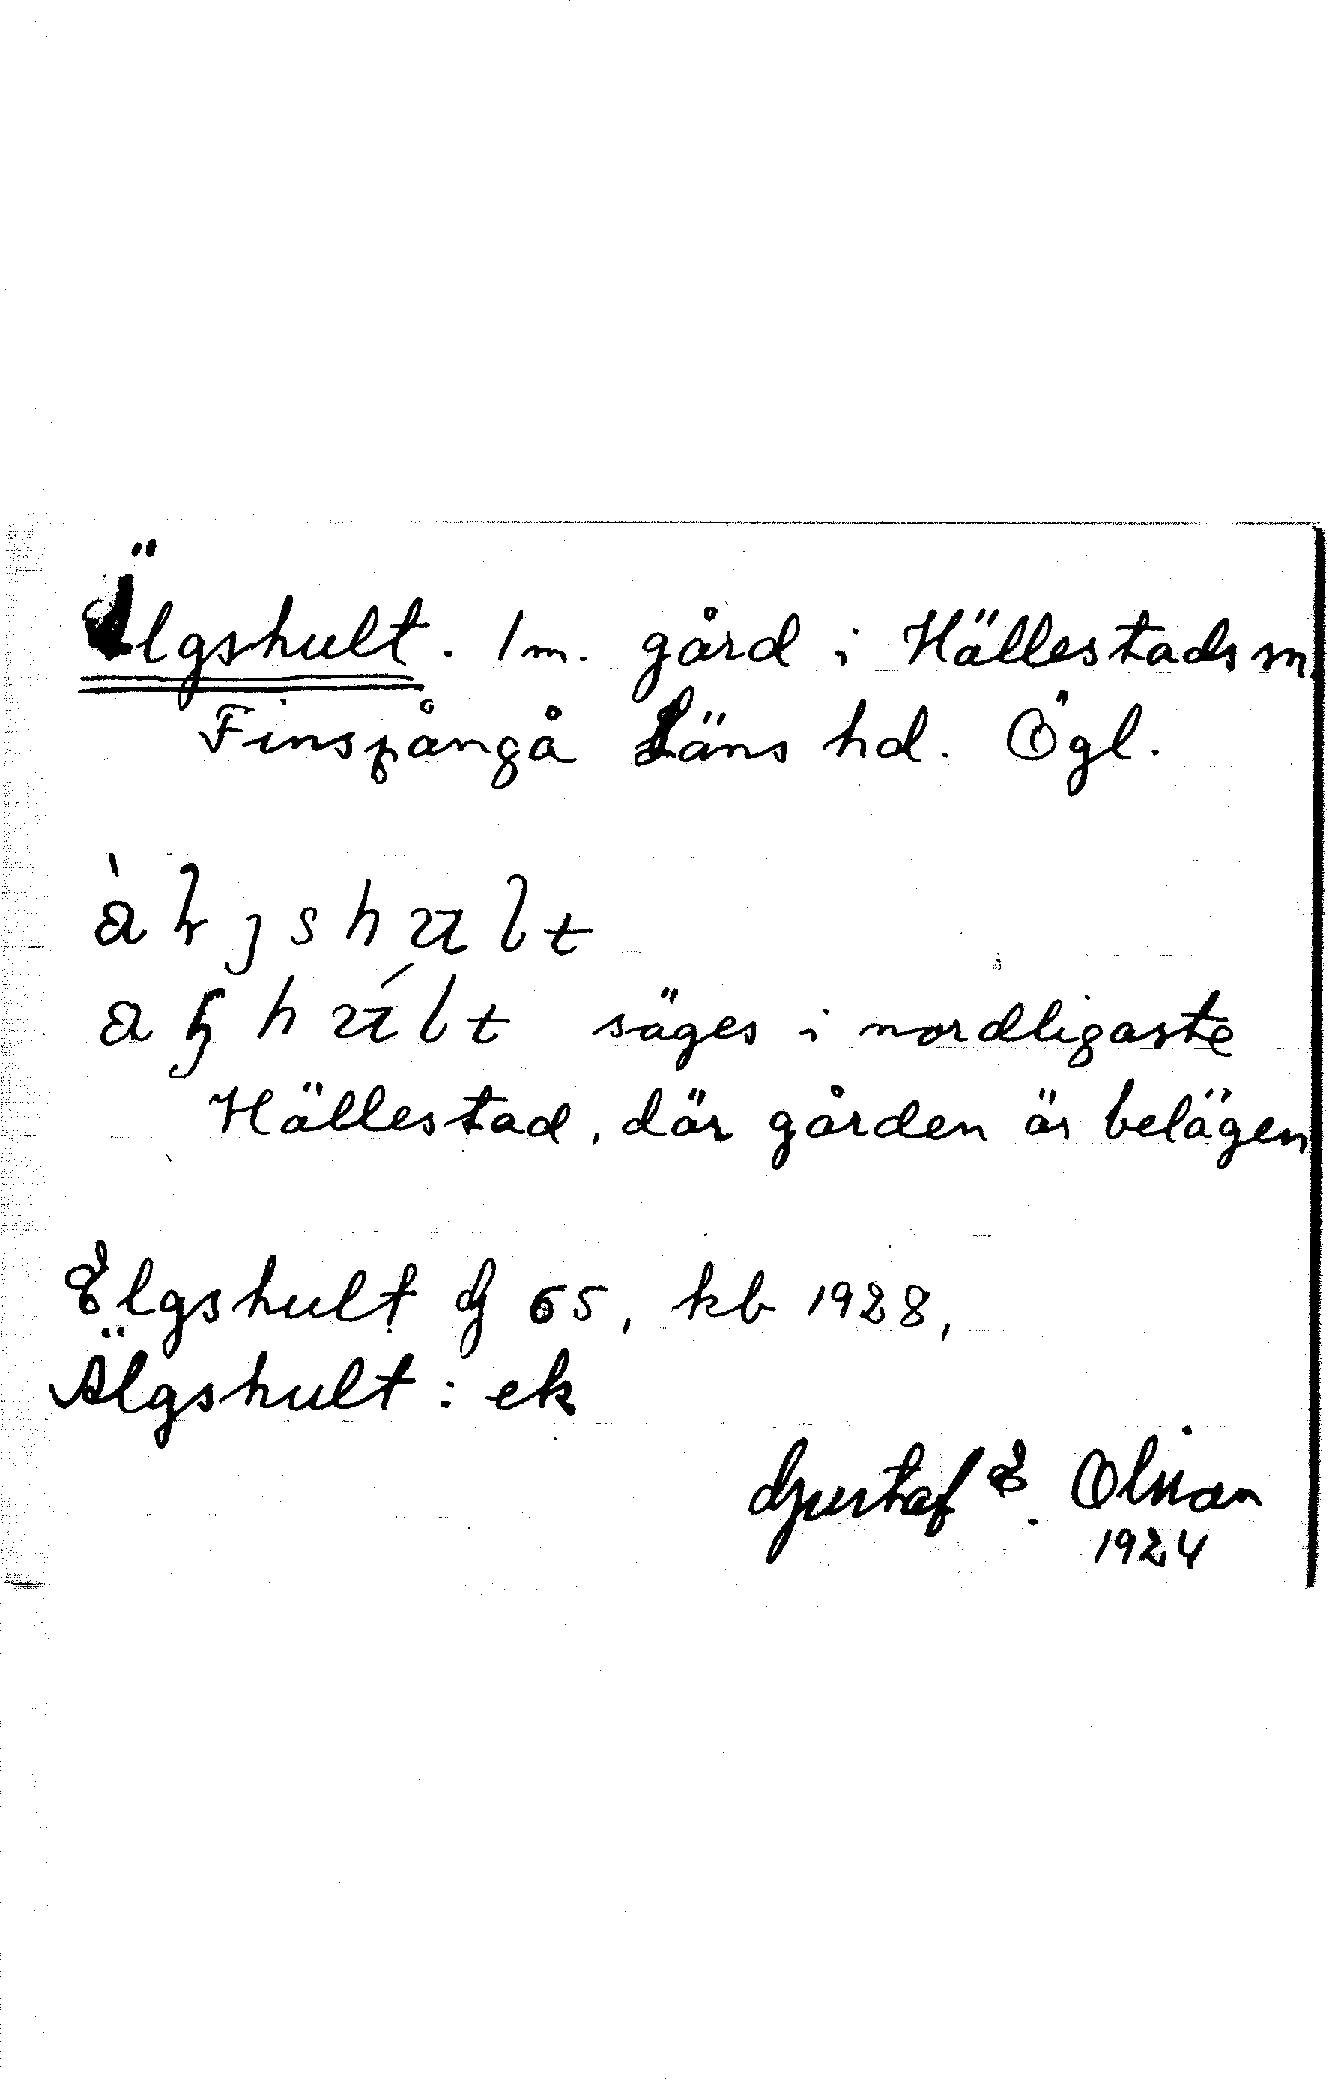 Älgshult. 1 m. gård i Hällestads sn
Finspångå Läns hd. Ögl.
säges i nordligaste
Hällestad, där gården är belägen
Elgshult G 65, kb 1928,
Älgshult: ek
Gustaf E. Olson
1924